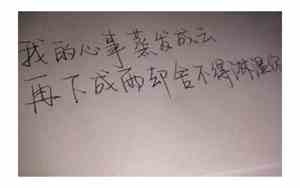 我的心事蒸发成云
再下成雨却舍不得淋湿你